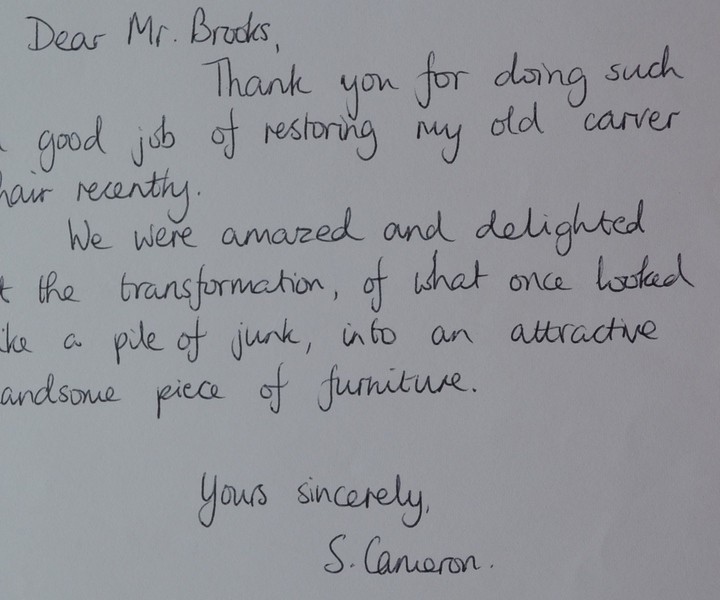 Dear Mr. Brooks,
Thank you for doing such
a good job of restoring my old carver
hair recently.
We were amazed and delighted
t the transformation, of what once looked
ike a pile of junk, into an attractive
andsome piece of furniture.
Yours sincerely,
S. Cameron.